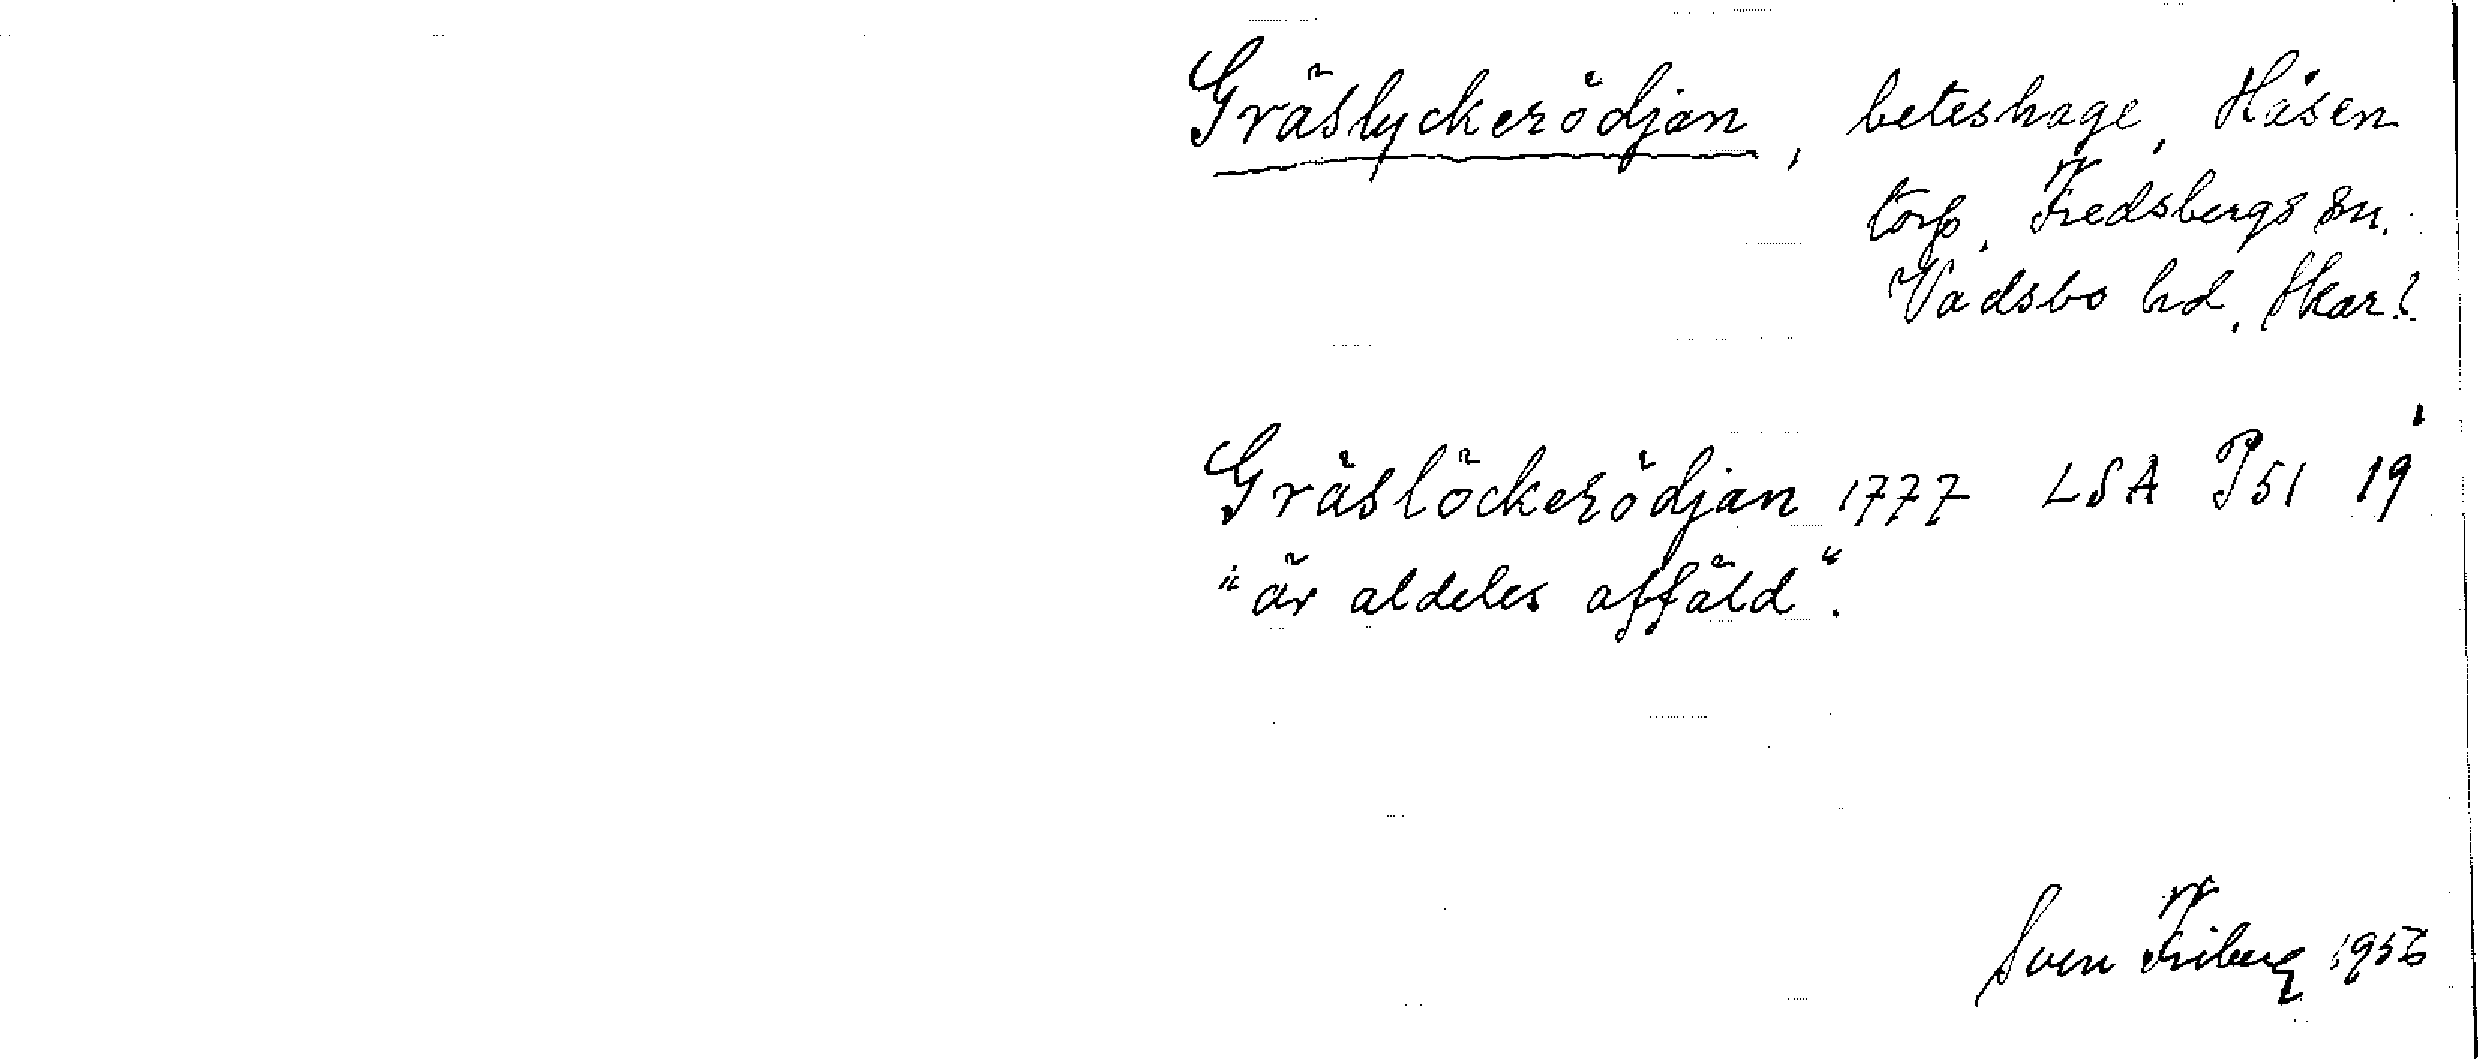 Gräslyckerödjan, beteshage, Håsen
torp, Fredsbergs sn.
Vadsbo hd, Skar.
Gräslöckerödjan 1777 LSA P51 19
"är aldeles affäld".
Sven Friberg 1956